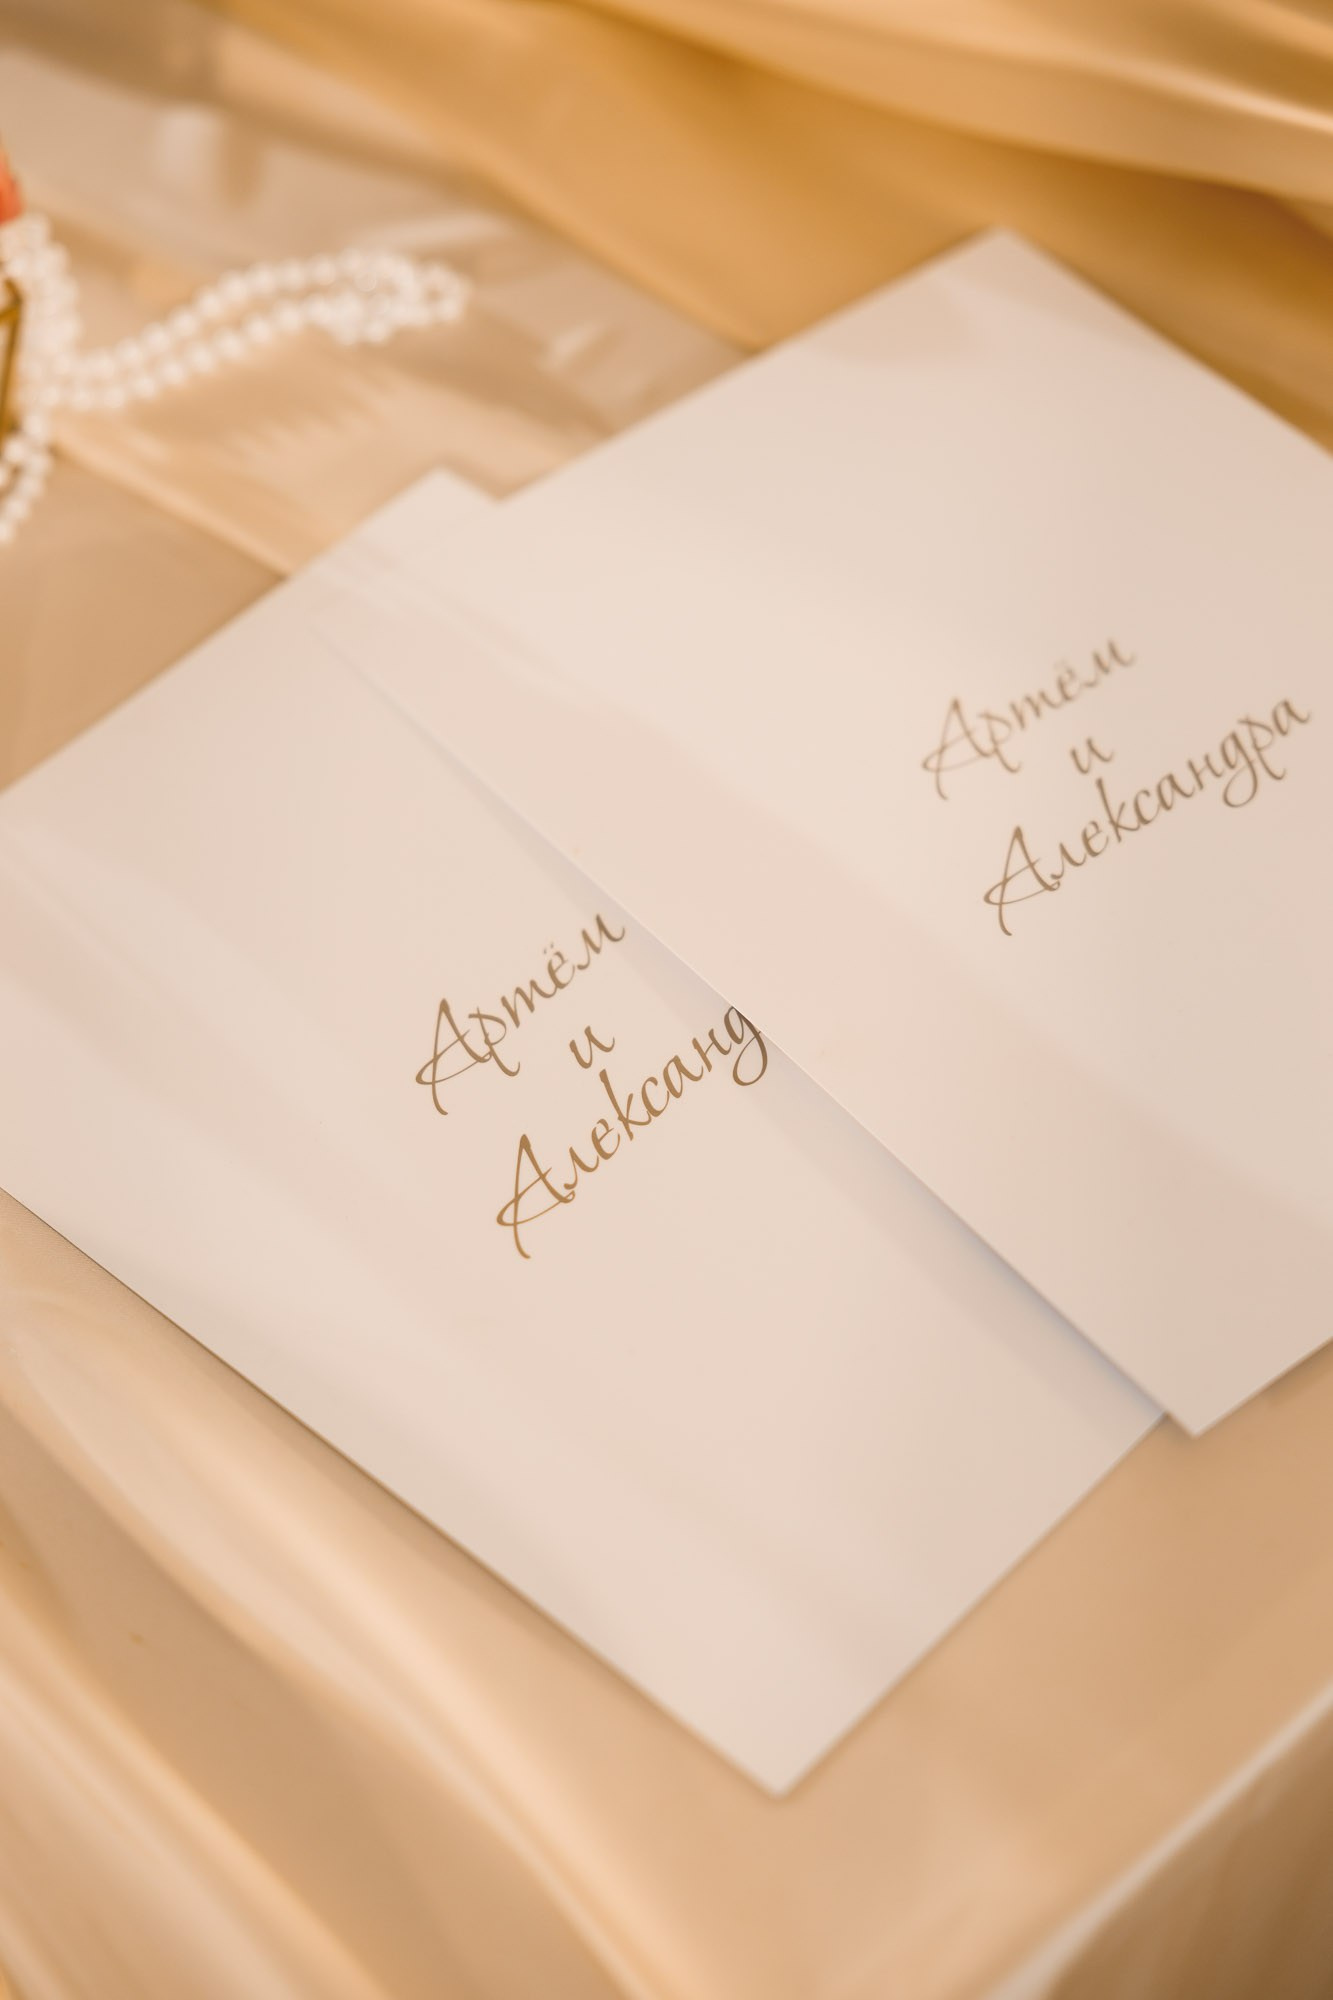 Артём
и
Александ
Артём
и
Александра